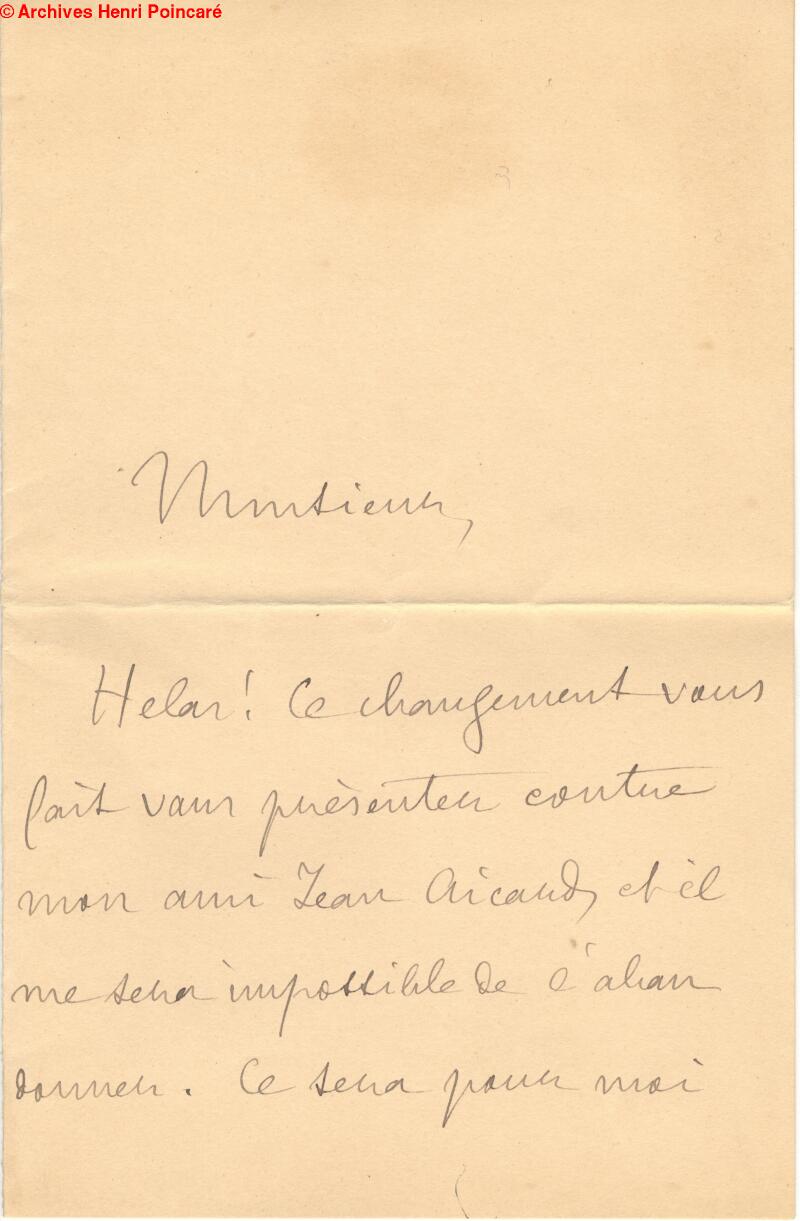 © Archives Henri Poincaré
Monsieur,
Helas! Ce changement vous
fait vous présenter contre
mon ami Jean Aicard, et il
me sera impossible de l'aban
donner. Ce sera pour moi